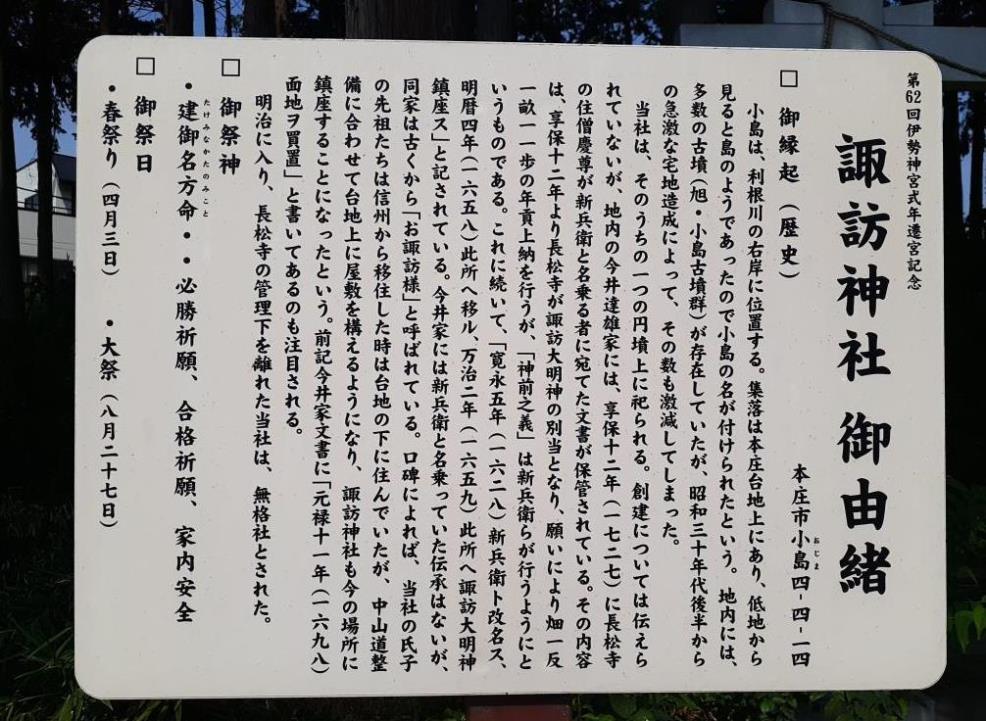 第62回伊勢神宮式年遷宮記念
諏訪神社 御由緒
本庄市小島四-四-一四
おじま
□ 御縁起(歴史)
小島は、利根川の右岸に位置する。集落は本庄台地上にあり、低地から
見ると島のようであったので小島の名が付けられたという。地内には、
多数の古墳(旭・小島古墳群)が存在していたが、昭和三十年代後半から
の急激な宅地造成によって、その数も激減してしまった。
当社は、そのうちの一つの円墳上に祀られる。創建については伝えら
れていないが、地内の今井達雄家には、享保十二年(一七二七)に長松寺
の住僧慶尊が新兵衛と名乗る者に宛てた文書が保管されている。その内容
は、享保十二年より長松寺が諏訪大明神の別当となり、願いにより畑一反
一畝一一歩の年貢上納を行うが、「神前之義」は新兵衛らが行うようにと
いうものである。これに続いて、「寛永五年(一六二八)新兵衛ト改名ス、
明暦四年(一六五八)此所へ移ル、万治二年(一六五九)此所へ諏訪大明神
鎮座ス」と記されている。今井家には新兵衛と名乗っていた伝承はないが、
同家は古くから「お諏訪様」と呼ばれている。口碑によれば、当社の氏子
の先祖たちは信州から移住した時は台地の下に住んでいたが、中山道整
備に合わせて台地上に屋敷を構えるようになり、諏訪神社も今の場所に
鎮座することになったという。前記今井家文書に「元禄十一年(一六九八)
面地ヲ買置」と書いてあるのも注目される。
明治に入り、長松寺の管理下を離れた当社は、無格社とされた。
□ 御祭神
・建御名方命・・必勝祈願、合格祈願、家内安全
たけみなかたのみこと
□ 御祭日
・春祭り(四月三日) ・大祭(八月二十七日)